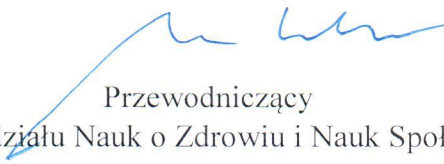 Przewodniczący
działu Nauk o Zdrowiu i Nauk Społ